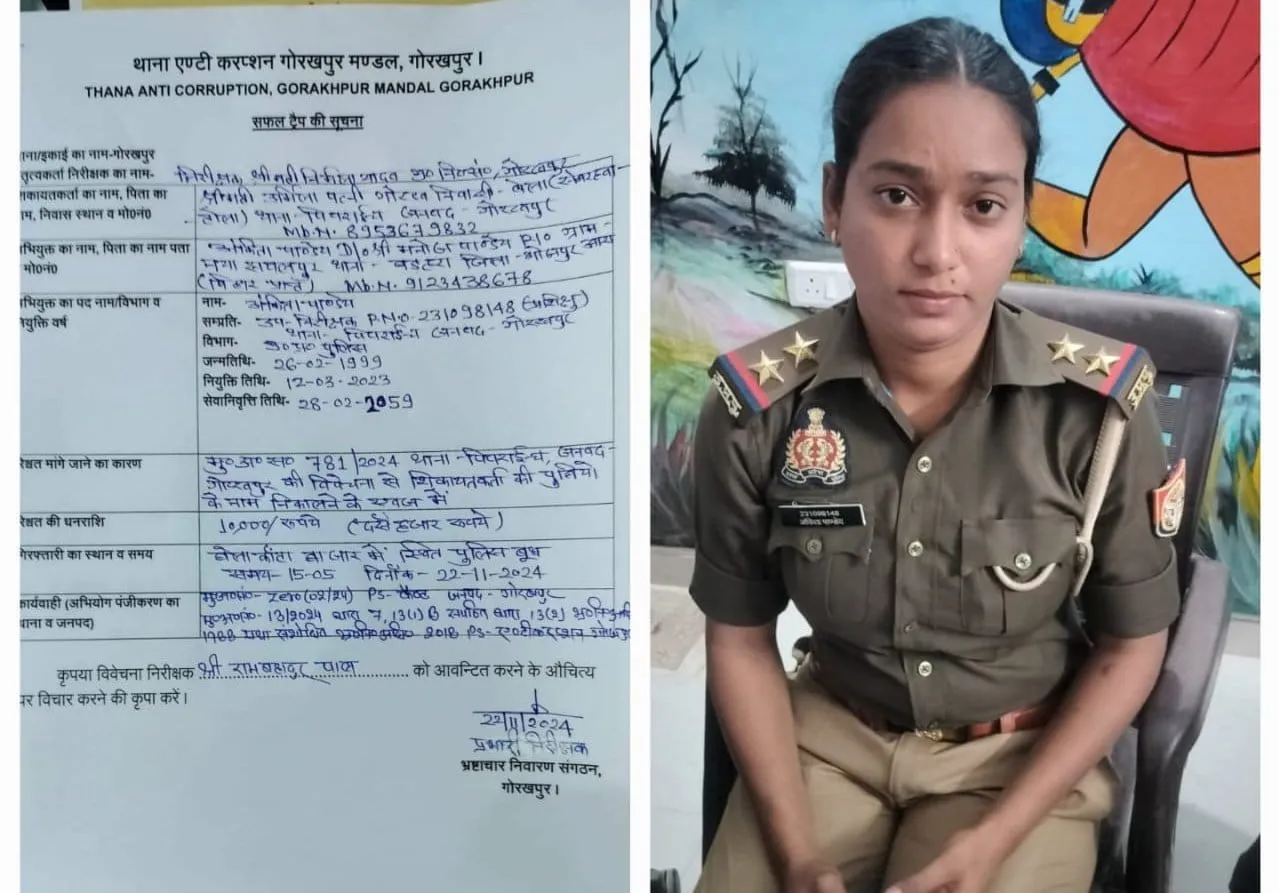 थाना एण्टी करप्शन गोरखपुर मण्डल, गोरखपुर।
THANA ANTI CORRUPTION, GORAKHPUR MANDAL GORAKHPUR
सफल ट्रैप की सूचना
ाना/इकाई का नाम-गोरखपुर
तृत्वकर्ता निरीक्षक का नाम- निरीक्षक श्रीमती यादव गोरखपुर
कायतकर्ता का नाम, पिता का
म, निवास स्थान व मो0नं0
श्रीमती उर्मिला पत्नी निवासी- बेला
टोला) थाना जनपद- गोरखपुर
Mb.N. 8953679832
भियुक्त का नाम, पिता का नाम पता
मो0नं0
अंकिता पाण्डेय D/o श्री मनोज पाण्डेय ग्राम-
थाना- बड़हरा जिला- भोजपुर आरा
(बिहार प्रान्त) Mb.N. 9123438678
भियुक्त का पद नाम/विभाग व
ियुक्ति वर्ष
नाम- अंकिता पाण्डेय
सम्प्रति- उप निरीक्षक P.N.O. 231098148 (प्रशिक्षु)
थाना- पिपराईच जनपद- गोरखपुर
विभाग- उ0प्र0 पुलिस
जन्मतिथि- 26-02-1999
नियुक्ति तिथि- 12-03-2023
सेवानिवृत्ति तिथि- 28-02-2059
रिश्वत मांगे जाने का कारण
मु0अ0सं0 781/2024 थाना- पिपराईच जनपद-
गोरखपुर की विवेचना से शिकायतकर्ता की पुत्रियों
के नाम निकालने के एवज में
रिश्वत की धनराशि
10,000/ रुपये (दस हजार रूपये)
गिरफ्तारी का स्थान व समय
बाजार में स्थित पुलिस बूथ
समय- 15-05 दिनांक- 22-11-2024
कार्यवाही (अभियोग पंजीकरण का
थाना व जनपद)
मु0अ0सं0- Zero (02/24) PS- कैण्ट जनपद- गोरखपुर
मु0अ0सं0- 13/2024 धारा 7, 13(1) B सपठित धारा 13(2)
1988 यथा संशोधित 2018 PS-
कृपया विवेचना निरीक्षक श्री रामबहादुर पाल को आवन्टित करने के औचित्य
पर विचार करने की कृपा करें।
22/11/2024
प्रभारी निरीक्षक
भ्रष्टाचार निवारण संगठन,
गोरखपुर।
231098148
अंकिता पाण्डेय